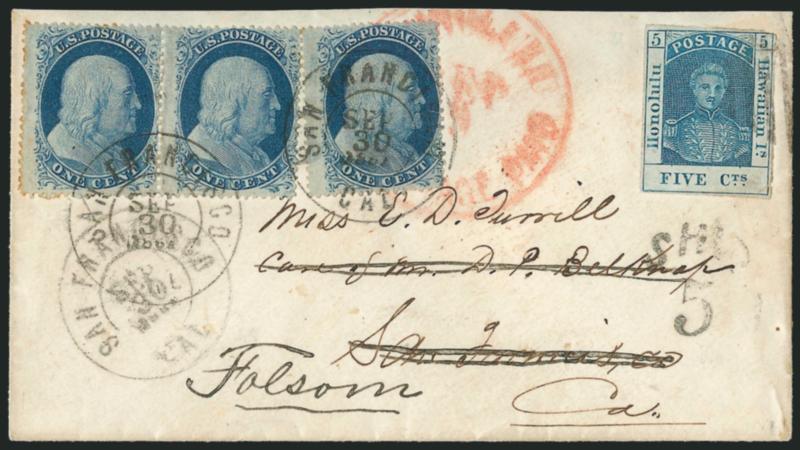 U.S. POSTAGE
ONE CENT
U.S. POSTAGE
ONE CENT
U.S. POSTAGE
ONE CENT
SAN FRANCISCO
SEP
30
CAL
SAN FRANCISCO
SEP
30
SAN FRANCISCO
CAL
5 POSTAGE 5
Honolulu
Hawaiian Is.
FIVE CTS
SHIP
5
Miss E. D. Turrill
Care of Mr. D. P. Belknap
San Francisco
Folsom
Ca.